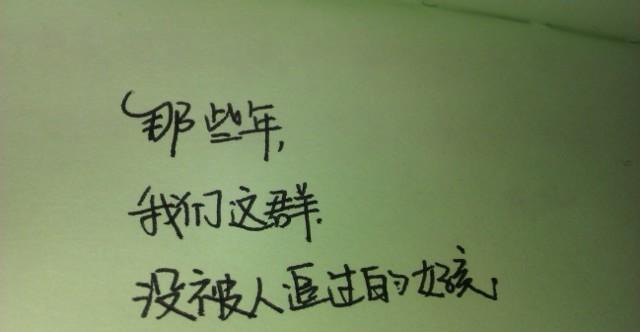 那些年,
我们这群.
没被人追过的女孩,